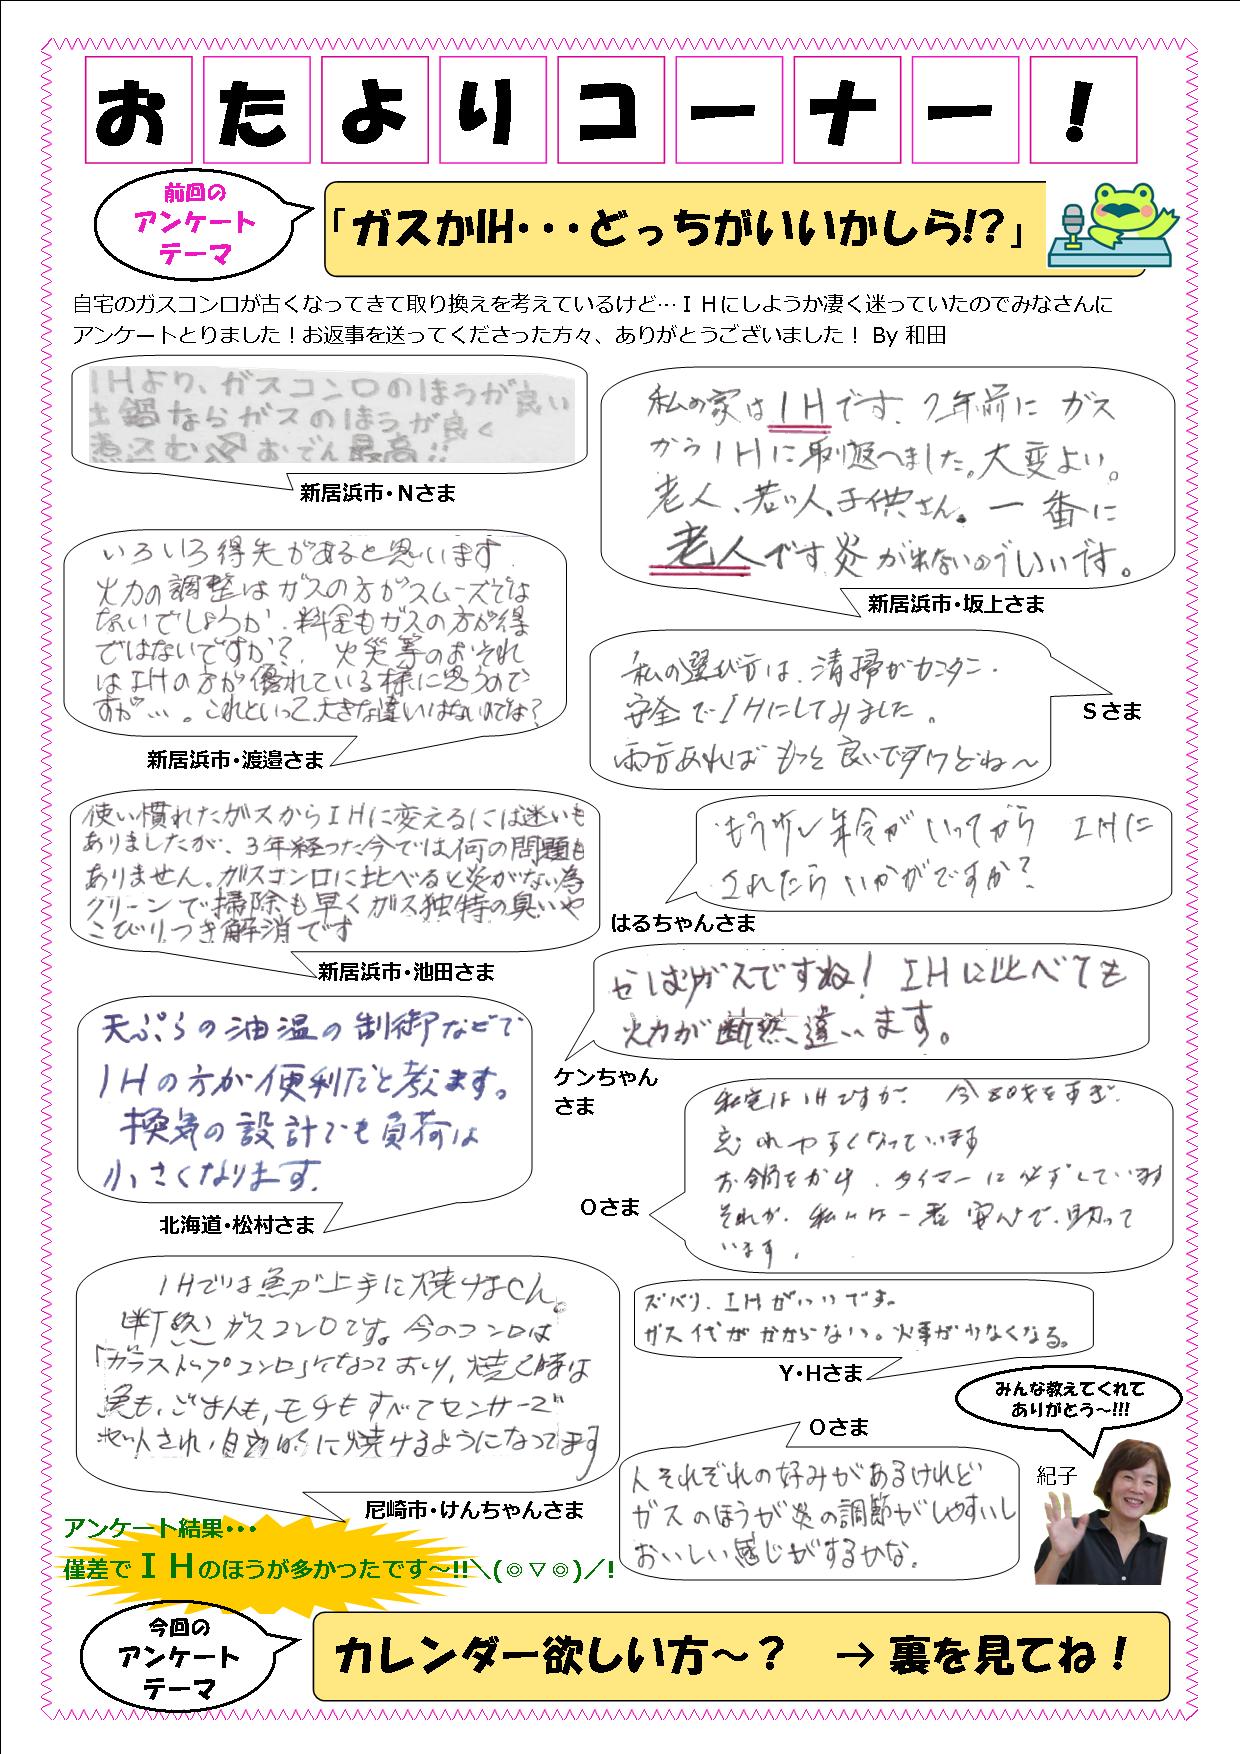 おたよりコーナー！
前回の
アンケート
テーマ
「ガスかIH・・・どっちがいいかしら!?」
自宅のガスコンロが古くなってきて取り換えを考えているけど…ＩＨにしようか凄く迷っていたのでみなさんに
アンケートとりました！お返事を送ってくださった方々、ありがとうございました！ By 和田
IHより、ガスコンロのほうが良い
土鍋ならガスのほうが良く
煮込む おでん最高!!
新居浜市・Nさま
私の家はIHです。7年前に ガス
からIHに取り返へました。大変よい。
老人、若い人、子供さん。一番に
老人です炎が出ないのでいいです。
新居浜市・坂上さま
いろいろ得失があると思います。
火力の調整はガスの方がスムーズでは
ないでしょうか。料金もガスの方が得
ではないですか？ 火災等のおそれ
はIHの方が優れている様に思うので
すが…。これといって大きな違いはないのでは？
新居浜市・渡邉さま
私の選び方は、清掃がカンタン・
安全でIHにしてみました。
両方あればもっと良いですけどね～
Ｓさま
使い慣れたガスからIHに変えるには迷いも
ありましたが、3年経った今では何の問題も
ありません。ガスコンロに比べると炎がない為
クリーンで掃除も早くガス独特の臭いや
こびりつき解消です
新居浜市・池田さま
もう少し年令がいってから IHに
されたらいかがですか？
はるちゃんさま
やはりガスですね！ IHに比べても
火力が断然違います。
ケンちゃん
さま
天ぷらの油温の制御などで
IHの方が便利だと考えます。
換気の設計でも負荷は
小さくなります。
北海道・松村さま
私宅はIHですが、今80才をすぎ、
忘れやすくなっています
お鍋をかけ、タイマーに必ずしています
それが、私には一番安心で、助って
います。
Oさま
IHでは魚が上手に焼けません。
断然ガスコンロです。今のコンロは
「ガラストップコンロ」になっており、焼く時は
魚も、ごはんも、モチもすべてセンサーで
され、自動的に焼けるようになってます
尼崎市・けんちゃんさま
ズバリ、IHがいいです。
ガス代がかからない。火事が少なくなる。
Y・Hさま
みんな教えてくれて
ありがとう～!!!
Oさま
人それぞれの好みがあるけれど
ガスのほうが炎の調節がしやすいし
おいしい感じがするかな。
紀子
アンケート結果・・・
僅差でＩＨのほうが多かったです～!!＼(◎▽◎)／!
今回の
アンケート
テーマ
カレンダー欲しい方～？ → 裏を見てね！